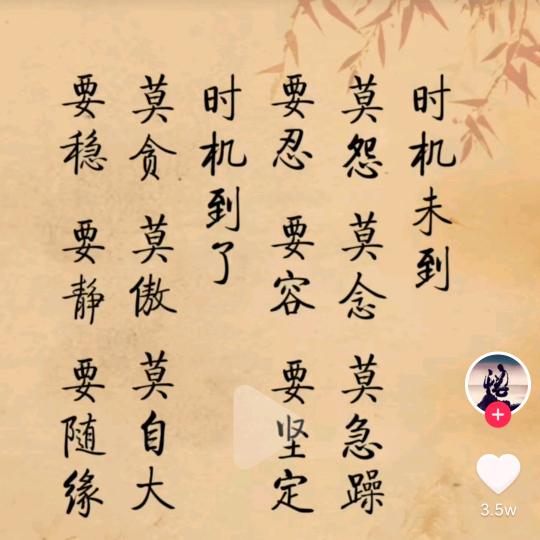 时机未到
莫怨 莫念 莫急躁
要忍 要容 要坚定
时机到了
莫贪 莫傲 莫自大
要稳 要静 要随缘
3.5w